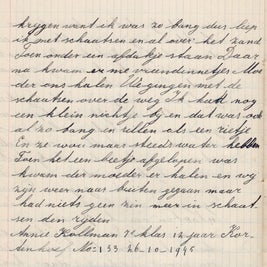 krijgen want ik was zo bang dus liep
ik met schaatsen en al over het zand
Toen onder een afdakje staan Daar
na kwam er me vriendinnetjes Moe
der ons halen We gingen met de
schaatsen over de weg Ik hadt nog
een klein nichtje bij en dat was ook
al zo bang en rillen als een rietje
En ze wou maar steeds water hebben
Toen het een beetje afgelopen was
kwam der moeder er halen en wij
zijn weer naar buiten gegaan maar
had niets geen zin meer in schaat
sen den rijden
Annie Kollman 7e klas 12 jaar Kor
No: 133 26-10-1945